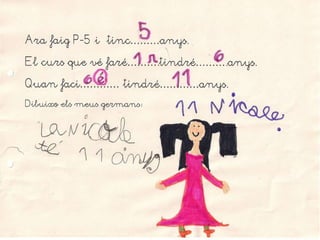 Ara faig P-5 i tinc.....5.....anys.
El curs que vé faré...1r...tindré.....6.....anys.
Quan faci...6é... tindré.....11.....anys.
Dibuixo els meus germans:
11 Nicole.
La Nicole
té 11 anys